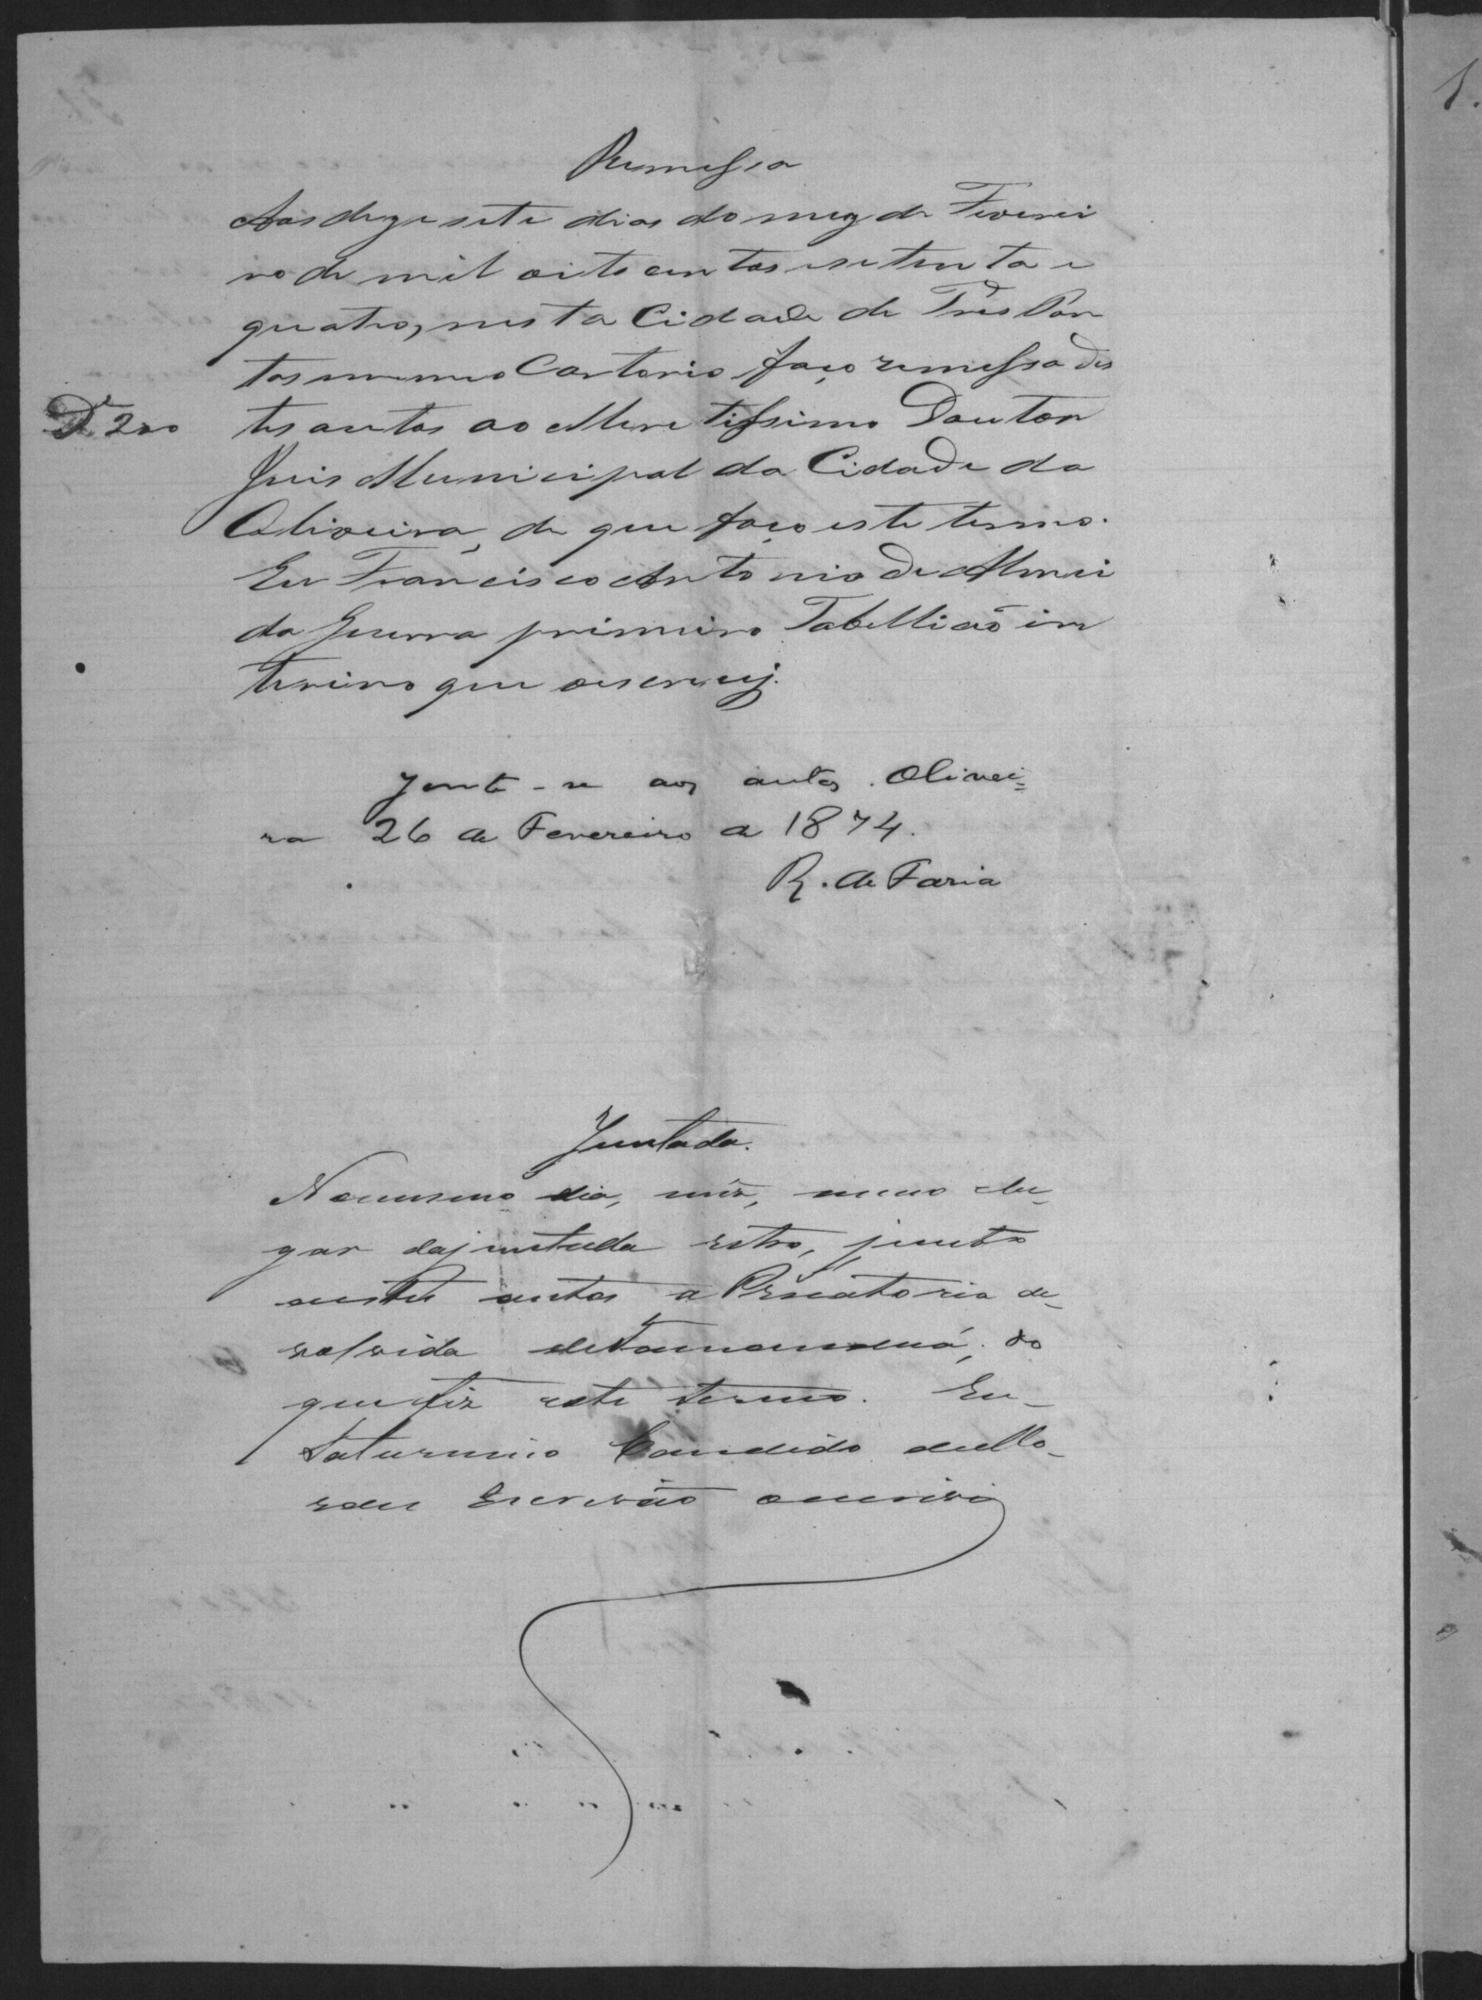 Remessa
Aos dezesete dias do mez de Feverei
ro de mil oito centos esetenta e
quatro, nesta Cidade de Três Pon
tas em meo Cartorio faço remessa des
D. 200
tes autos ao Meretissimo Doutor
Juis Municipal da Cidade da
Oliveira, de que faço este termo.
Eu Francisco Antonio de Almei
da Guerra primeiro Tabellião in
terino que oescrevij.
Junte-se aos autos. Olivei=
ra 26 de Fevereiro de 1874.
R. de Faria
Juntada.
No mesmo dia, mêz, anno elu-
gar dajuntada retro, junto
aestes autos a Precatoria de-
volvida deTamanduá, do
que fiz este termo. Eu-
Saturnino Candido
Escrivão oescrivi